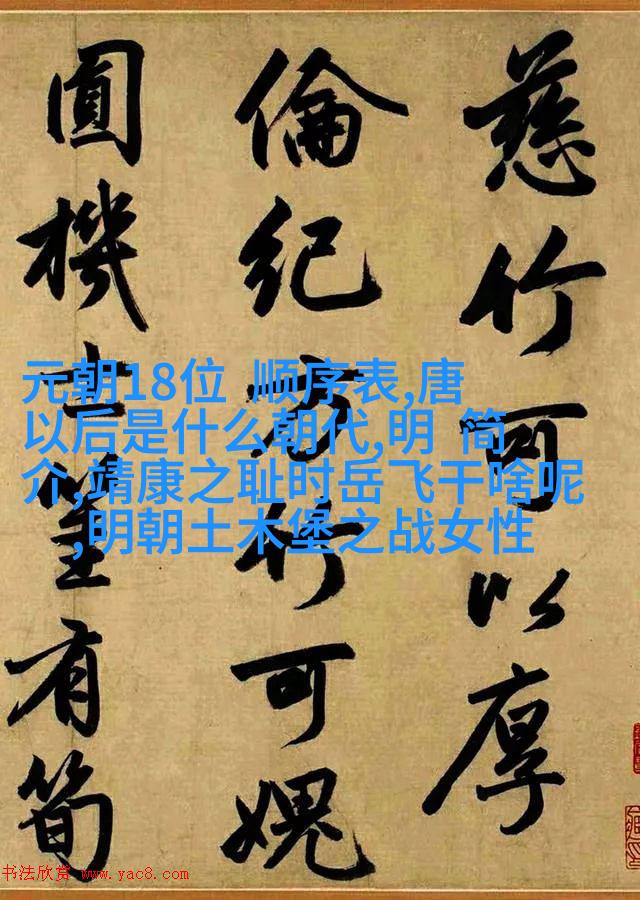 慈竹可以厚
倫紀方竹可媿
圓機士筀有筍
元朝18位 顺序表,唐
以后是什么朝代,明 简
介,靖康之耻时岳飞干啥呢
,明朝土木堡之战女性
书法欣赏 www.yac8.com